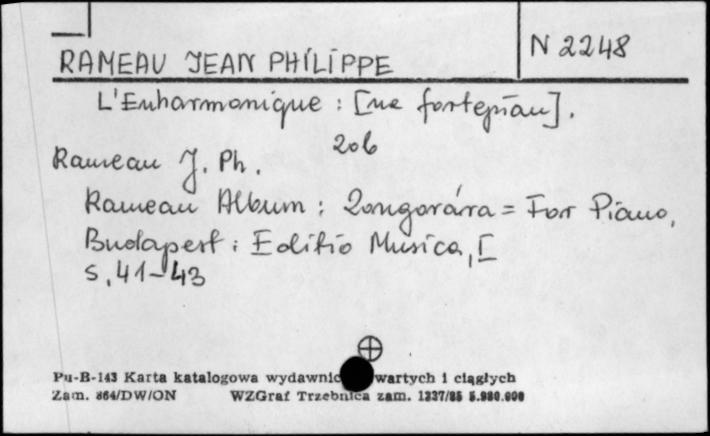 N 2248
RAMEAU JEAN PHILIPPE
L'Enharmonique : [na fortepian].
206
Rameau J. Ph.
Rameau Album : Zongorára = For Piano,
Budapest : Editio Musica, [
S. 41-43
Pu-B-143 Karta katalogowa wydawnic wartych i ciągłych
Zam. 864/DW/ON WZGraf Trzebnica zam. 1337/85 5.980.000